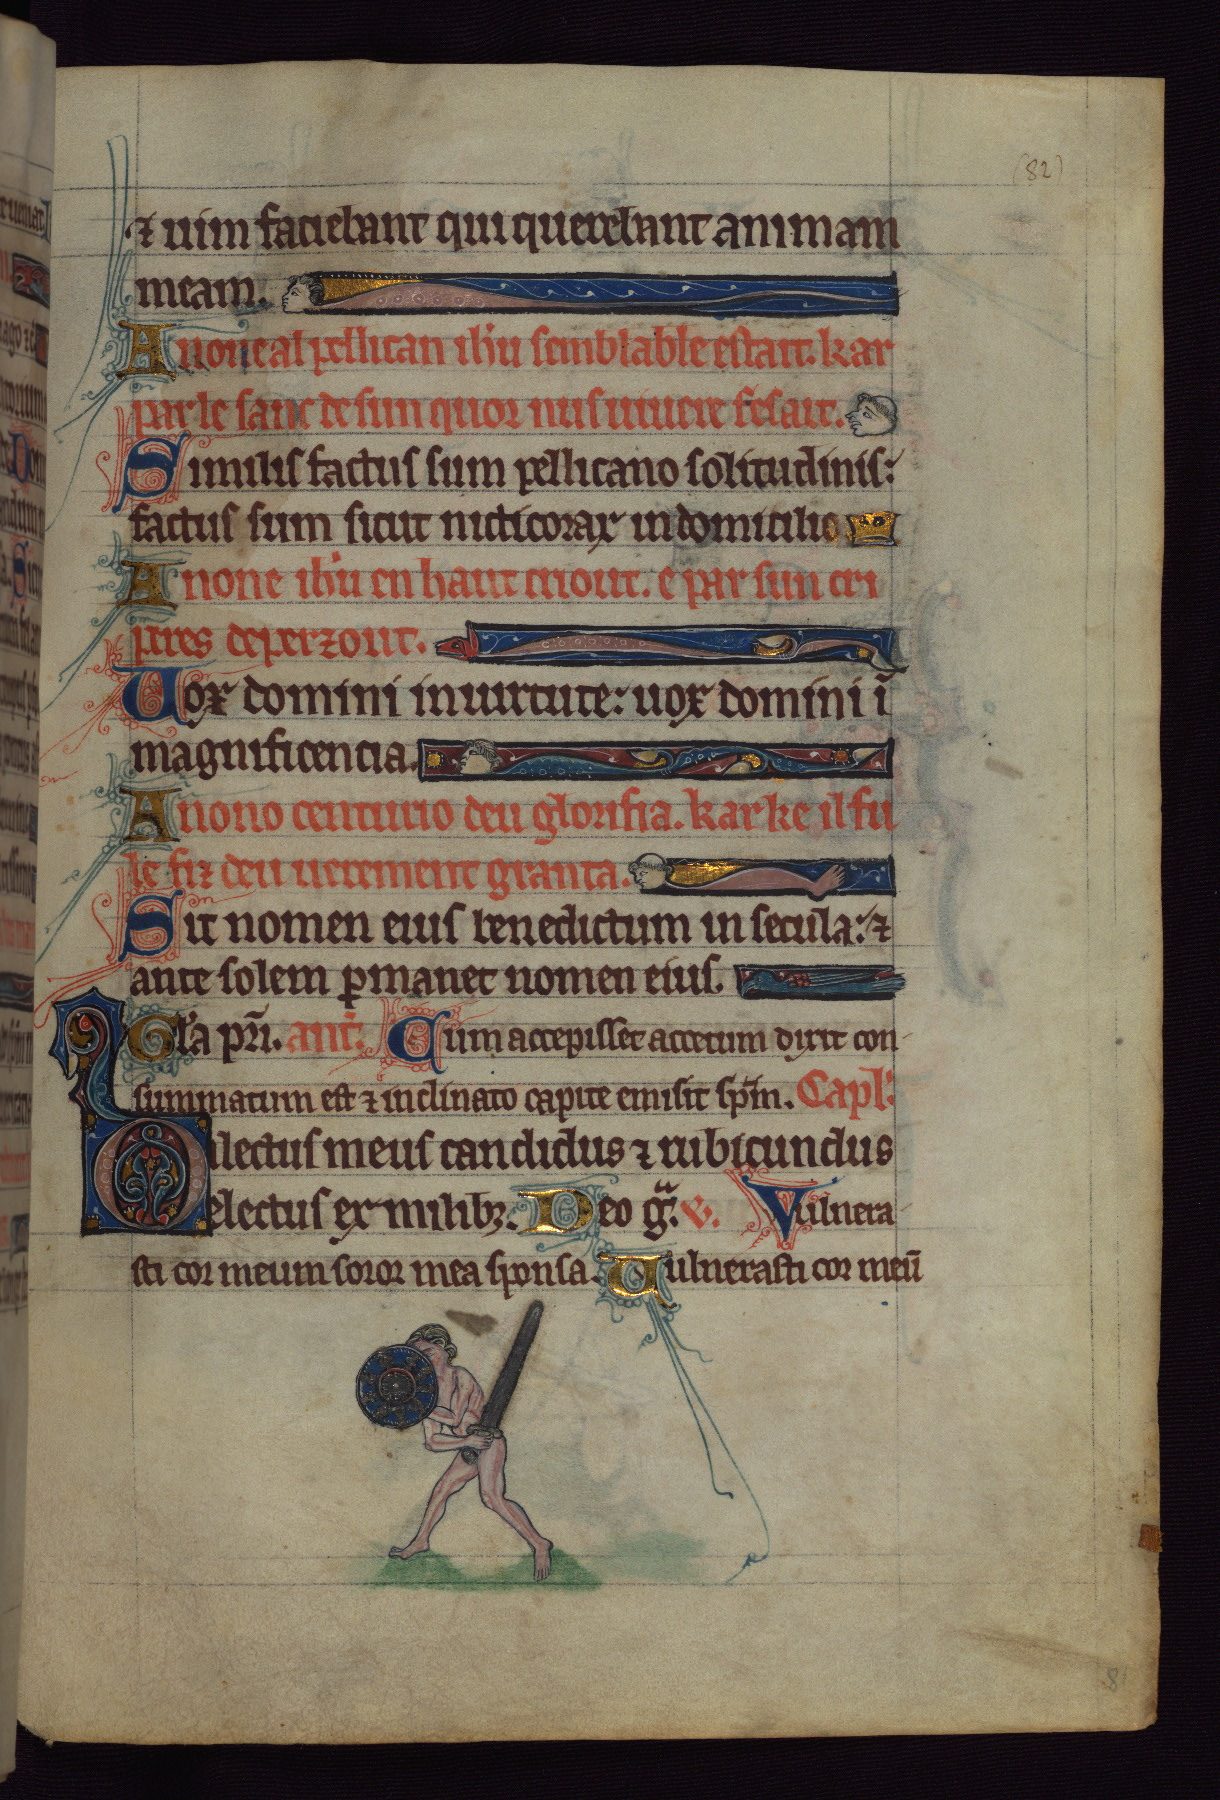 (82)
⁊ uim faciebant qui querebant animam
meam.
A none al pellican ihũ semblable estait. kar
par le sanc de sun quor nus uiuere fesait.
Similis factus sum pellicano solitudinis:
factus sum sicut nicticorax in domicilio
A none ihũ en haut criout. e par sun cri
peres deperzout.
Uox domini in uirtute: uox domini ĩ
magnificencia.
A nono centurio deu glorifia. kar ke il fu
le fiz deu uerement granta.
Sit nomen eius benedictum in secula: ⁊
ante solem ꝑmanet nomen eius.
Gl̃a pr̃i. ant̃. Cum accepisset accetum dixit con-
summatum est ⁊ inclinato capite emisit sp̃m. Capl̃.
Dilectus meus candidus ⁊ rubicundus
electus ex milibꝫ. Deo gr̃a. v. Vulnera
sti cor meum soror mea sponsa. Uulnerasti cor meũ